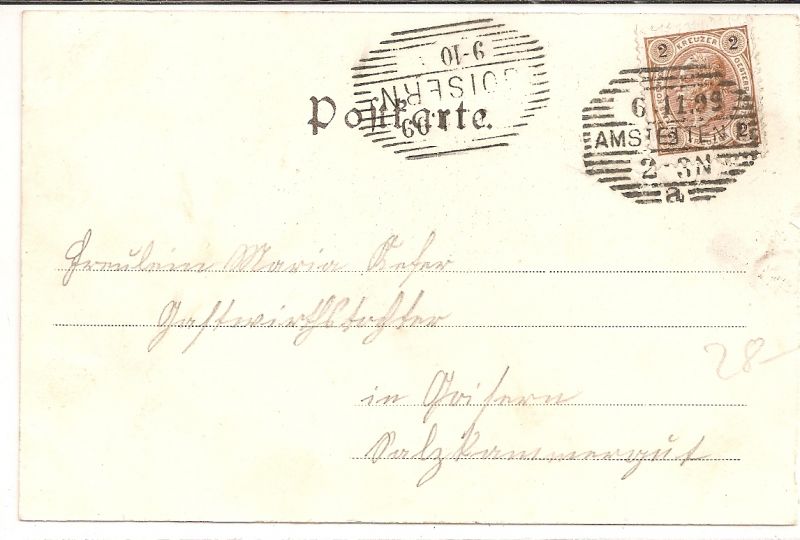 9-10
GOISERN
99
Postkarte.
2 KREUZER 2
2 2
6.11.99
AMSTETTEN
2-3N
a
Freulein Maria Kefer
Gastwirthstochter
in Goisern
Salzkammergut
28-